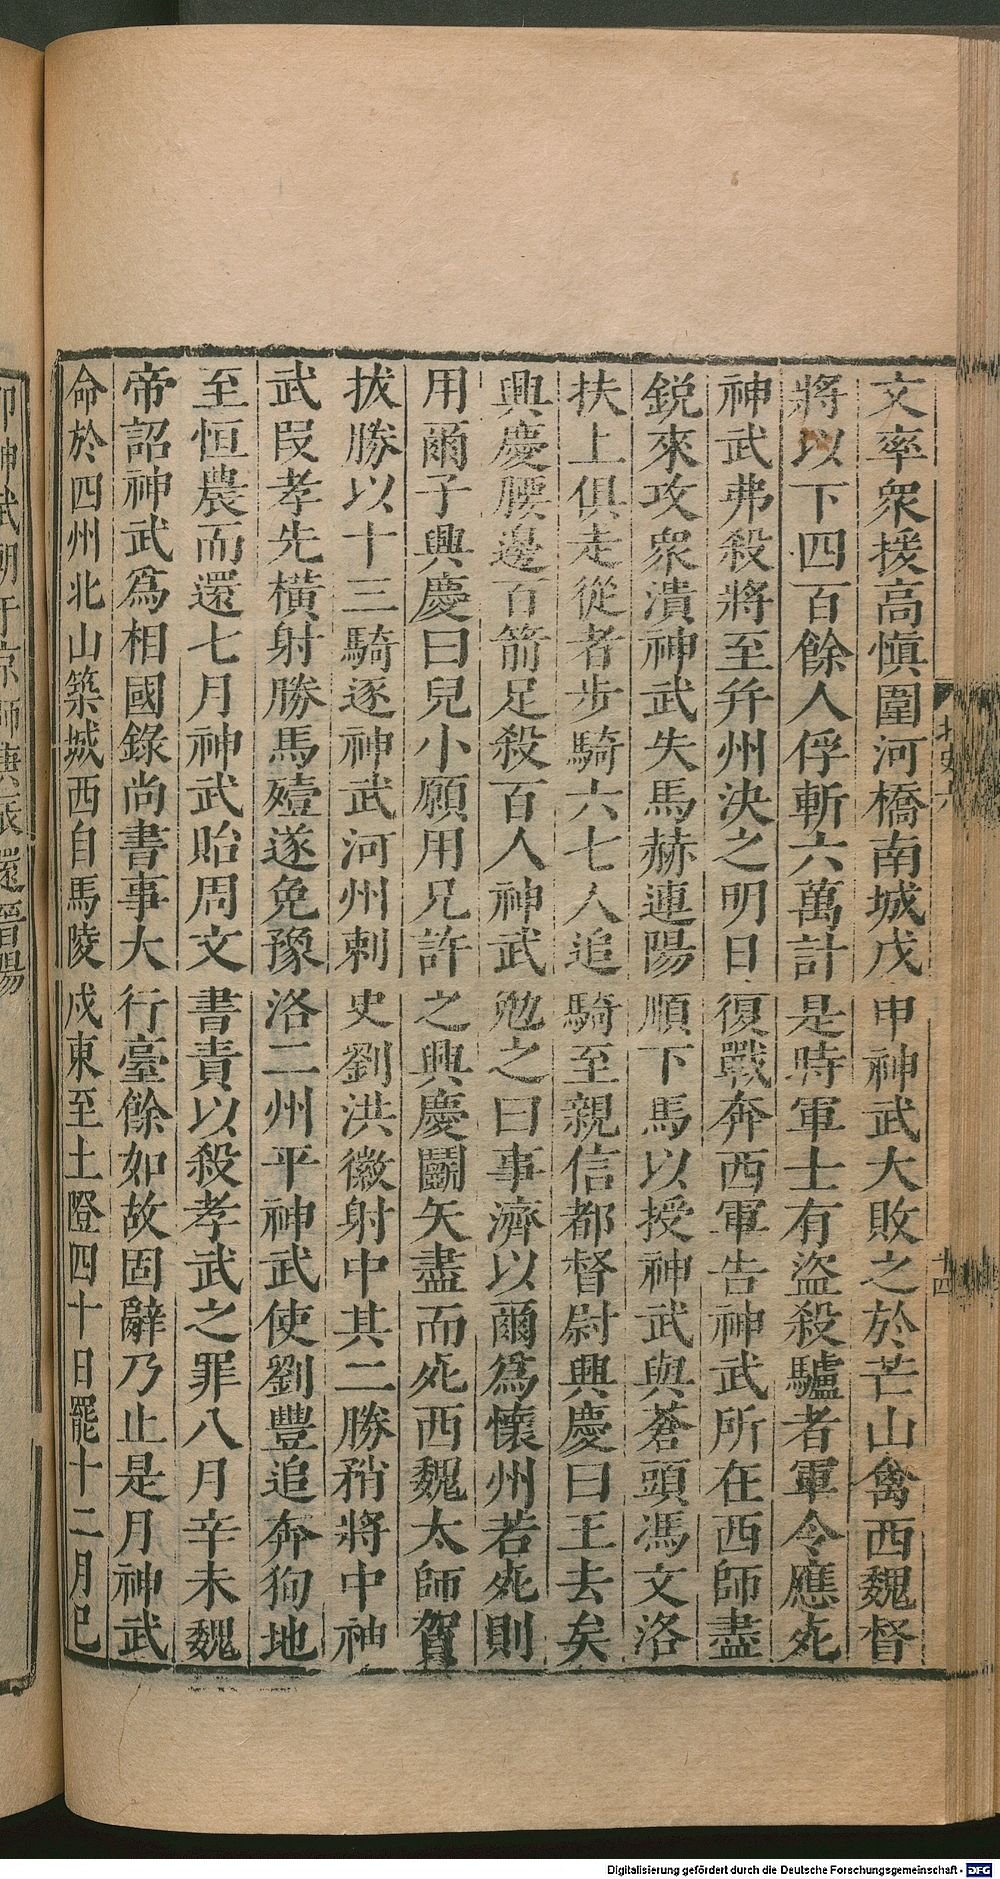 文率衆援高慎圍河橋南城戊申神武大敗之於芒山禽西魏督
將以下四百餘人俘斬六萬計是時軍士有盜殺驢者軍令應死
神武弗殺將至幷州決之明日復戰奔西軍告神武所在西師盡
銳來攻衆潰神武失馬赫連陽順下馬以授神武與蒼頭馮文洛
扶上俱走從者步騎六七人追騎至親信都督尉興慶曰王去矣
興慶腰邊百箭足殺百人神武勉之曰事濟以爾爲懷州若死則
用爾子興慶曰兒小願用兄許之興慶鬭矢盡而死西魏太師賀
拔勝以十三騎逐神武河州刺史劉洪徽射中其二勝矟將中神
武段孝先橫射勝馬殪遂免豫洛二州平神武使劉豐追奔徇地
至恒農而還七月神武貽周文書責以殺孝武之罪八月辛未魏
帝詔神武爲相國錄尚書事大行臺餘如故固辭乃止是月神武
命於四州北山築城西自馬陵戍東至土隥四十日罷十二月己
北史六
十四
卯神武朝于京師還晉陽
Digitalisierung gefördert durch die Deutsche Forschungsgemeinschaft - DFG